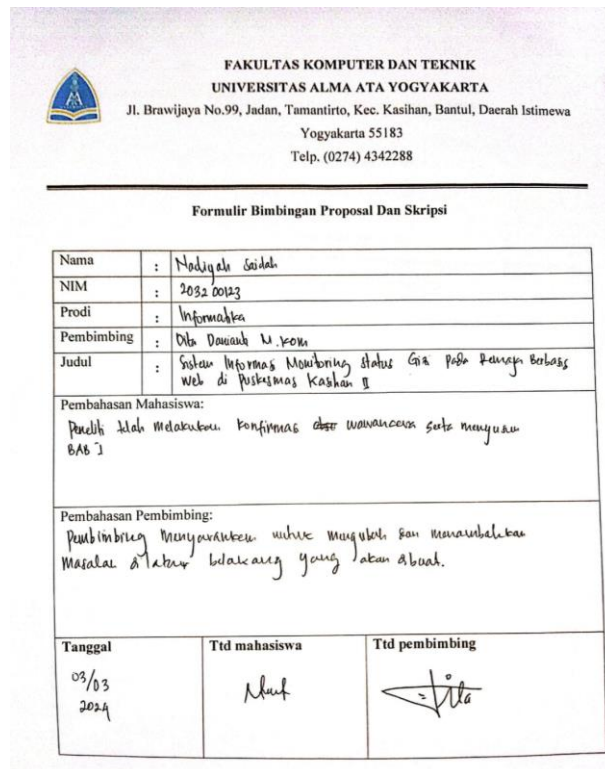 FAKULTAS KOMPUTER DAN TEKNIK
UNIVERSITAS ALMA ATA YOGYAKARTA
Jl. Brawijaya No.99, Jadan, Tamantirto, Kec. Kasihan, Bantul, Daerah Istimewa
Yogyakarta 55183
Telp. (0274) 4342288
Formulir Bimbingan Proposal Dan Skripsi
Nama : Nadiyah Saidah
NIM : 203200123
Prodi : Informatika
Pembimbing : Dita Danianti M.Kom
Judul : Sistem Informasi Monitoring Status Gizi Pada Remaja Berbasis
Web di Puskesmas Kasihan II
Pembahasan Mahasiswa:
Peneliti telah melakukan konfirmasi wawancara serta menyusun
BAB I
Pembahasan Pembimbing:
Pembimbing menyarankan untuk mengubah dan menambahkan
masalah di latar belakang yang akan dibuat.
Tanggal Ttd mahasiswa Ttd pembimbing
03/03
2024
Dita